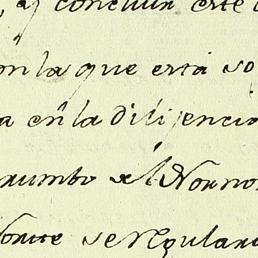 concluir este
on la que está so
a en la dilijencia
rumbo del Nor no
Norte se regular